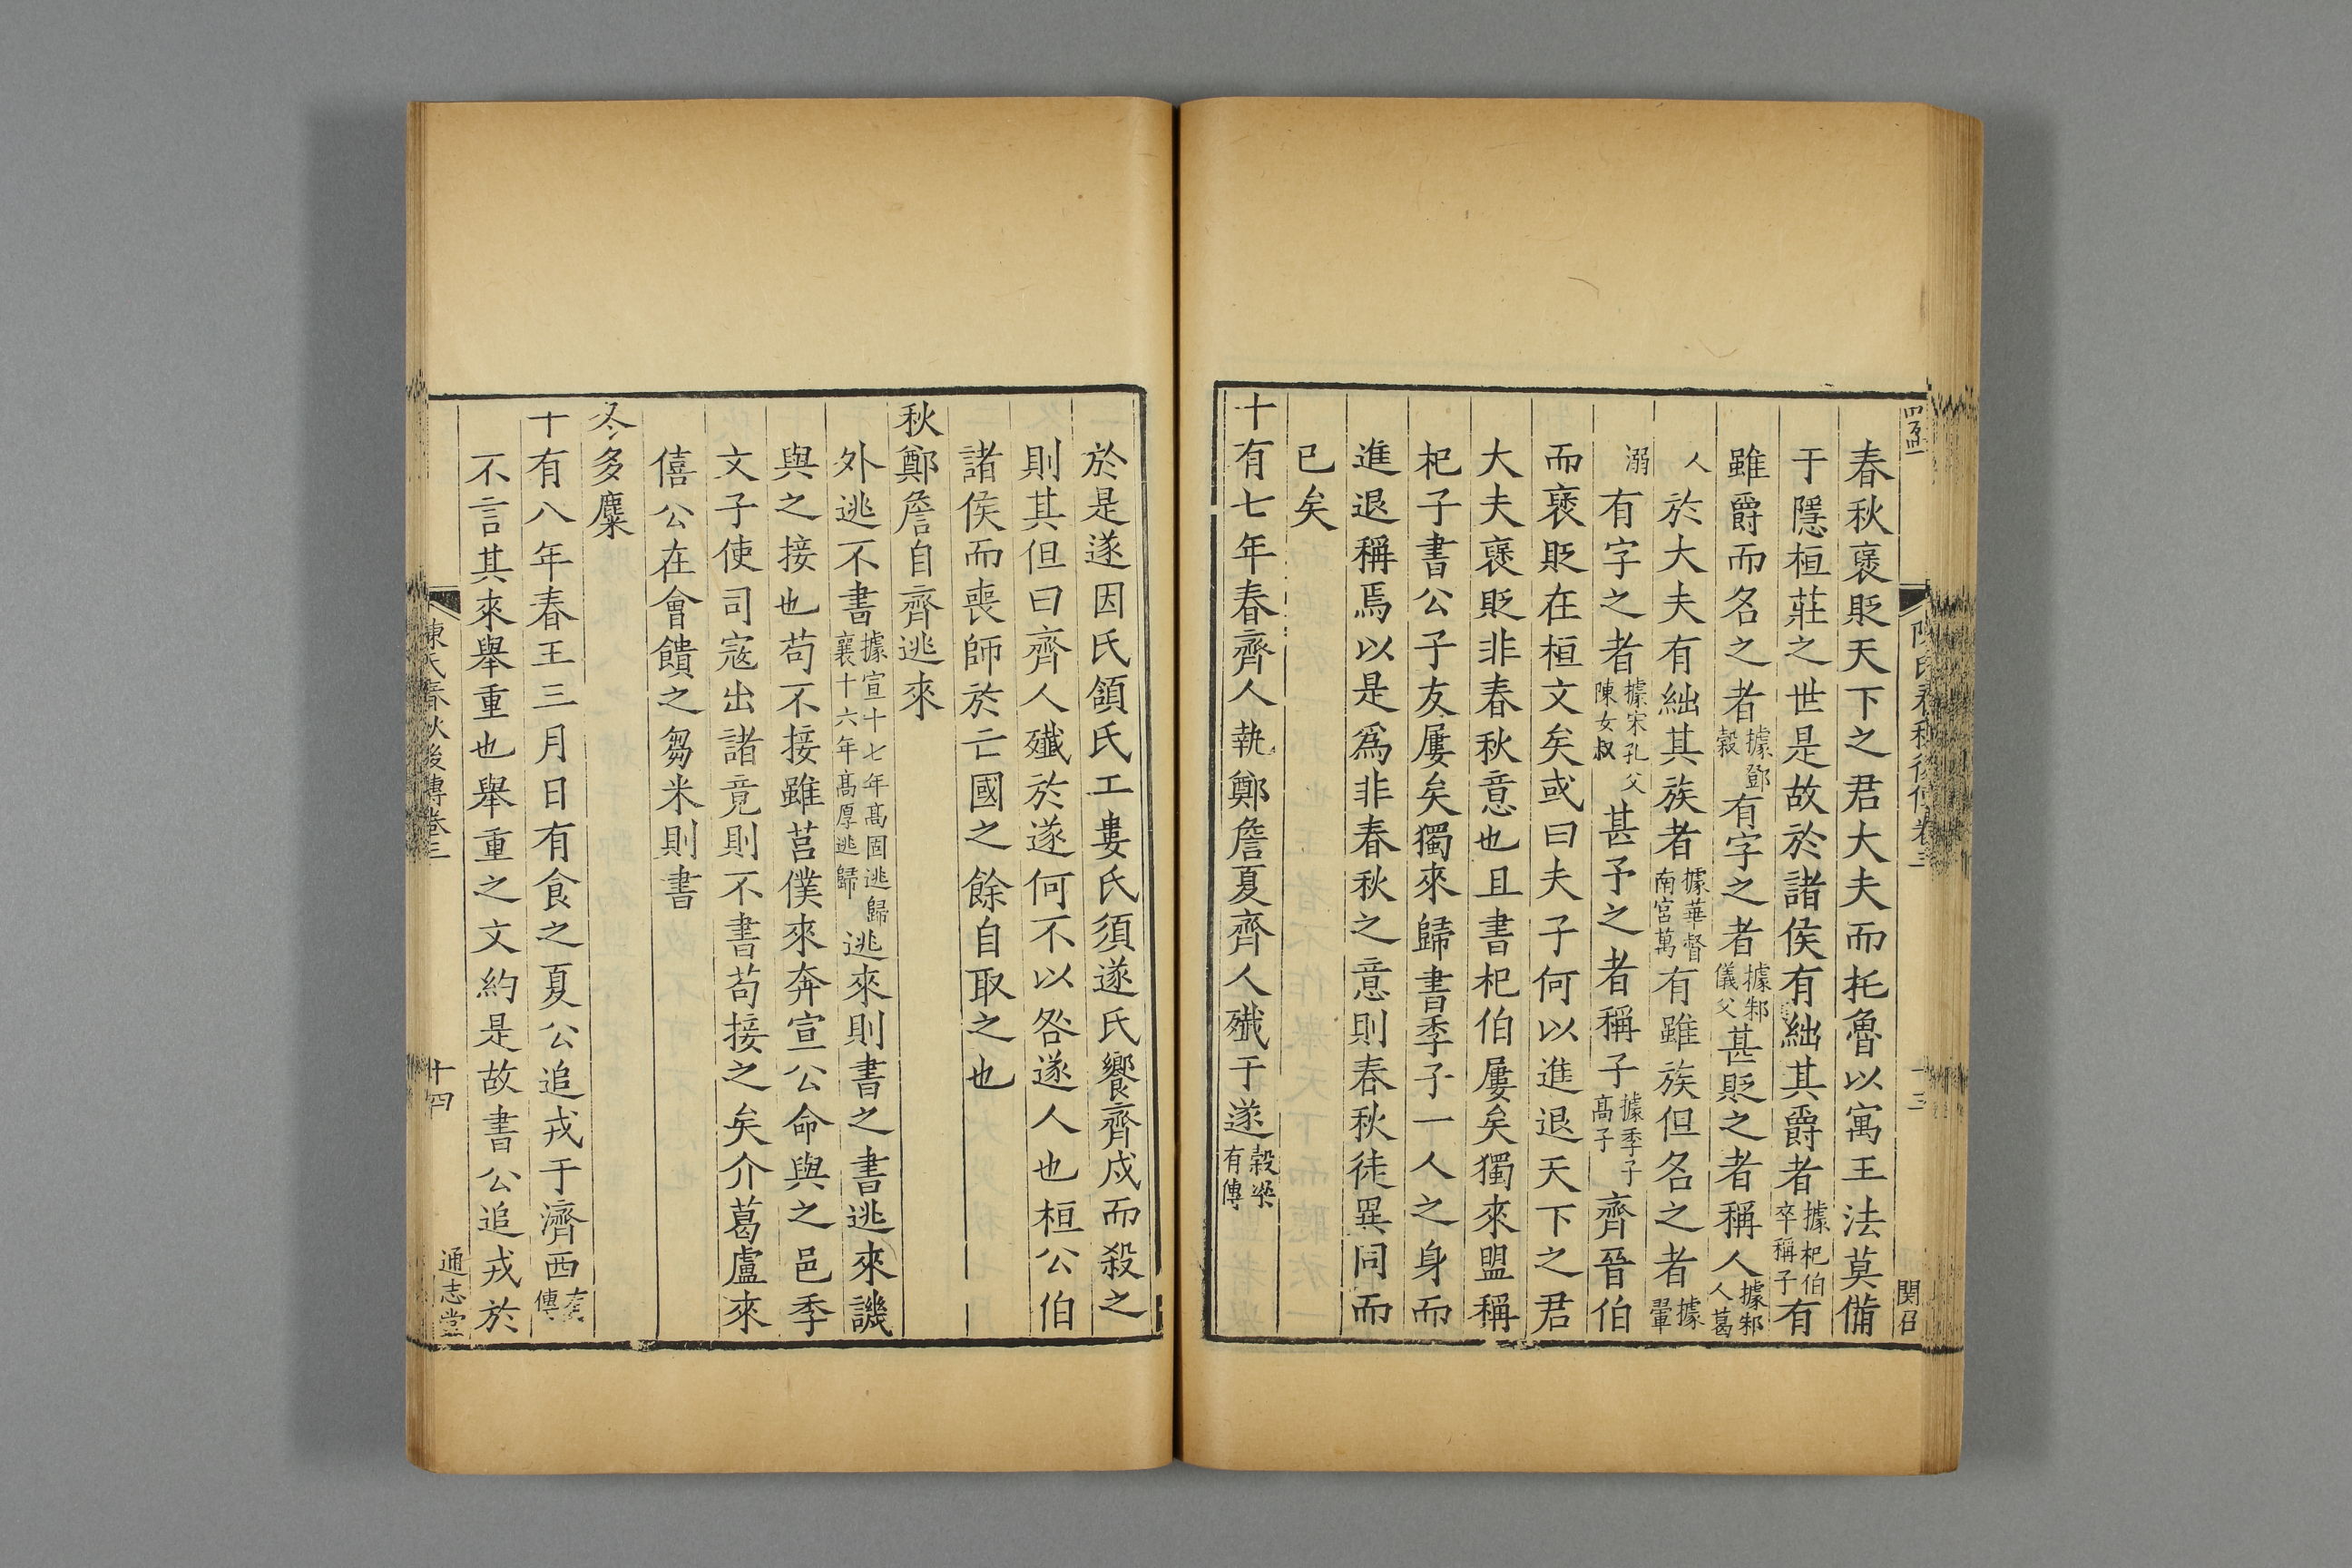 春秋襃貶天下之君大夫而托魯以寓王法莫備
于隱桓莊之世是故於諸侯有絀其爵者據杞伯卒稱子有
雖爵而名之者據鄧穀有字之者據邾儀父甚貶之者稱人據邾人葛
人於大夫有絀其族者據華督南宮萬有雖族但名之者據翬
溺有字之者據宋孔父陳女叔甚予之者稱子據季子高子齊晉伯
而襃貶在桓文矣或曰夫子何以進退天下之君
大夫襃貶非春秋意也且書杞伯屢矣獨來盟稱
杞子書公子友屢矣獨來歸書季子一人之身而
進退稱焉以是爲非春秋之意則春秋徒異同而
已矣
十有七年春齊人執鄭詹夏齊人殲于遂穀梁有傳
於是遂因氏領氏工婁氏須遂氏饗齊戍而殺之
則其但曰齊人殲於遂何不以咎遂人也桓公伯
諸侯而喪師於亡國之餘自取之也
秋鄭詹自齊逃來
外逃不書據宣十七年高固逃歸襄十六年高厚逃歸逃來則書之書逃來譏
與之接也苟不接雖莒僕來奔宣公命與之邑季
文子使司寇出諸竟則不書苟接之矣介葛盧來
僖公在會饋之芻米則書
冬多麋
十有八年春王三月日有食之夏公追戎于濟西左傳
不言其來舉重也舉重之文約是故書公追戎於
陳氏春秋後傳卷三
十四
通志堂